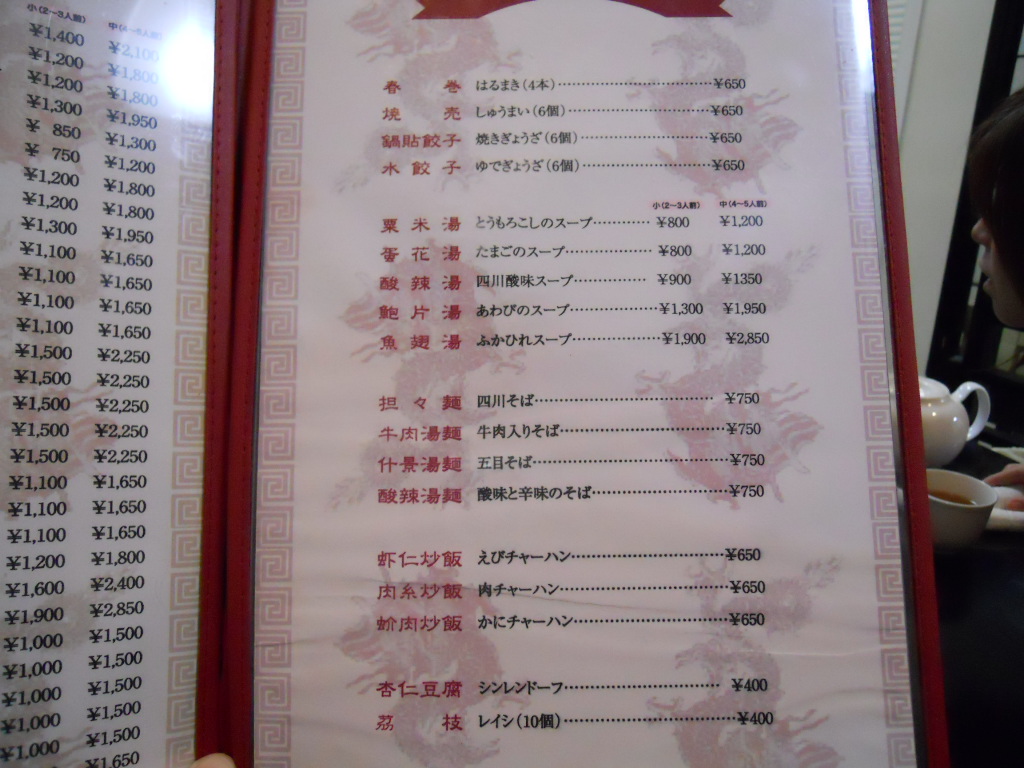 小(2〜3人前) 中(4〜5人前)
¥1,400 ¥2,100
¥1,200 ¥1,800
¥1,200 ¥1,800
¥1,300 ¥1,950
¥ 850 ¥1,300
¥ 750 ¥1,200
¥1,200 ¥1,800
¥1,200 ¥1,800
¥1,300 ¥1,950
¥1,100 ¥1,650
¥1,100 ¥1,650
¥1,100 ¥1,650
¥1,100 ¥1,650
¥1,500 ¥2,250
¥1,500 ¥2,250
¥1,500 ¥2,250
¥1,500 ¥2,250
¥1,500 ¥2,250
¥1,100 ¥1,650
¥1,100 ¥1,650
¥1,100 ¥1,650
¥1,200 ¥1,800
¥1,600 ¥2,400
¥1,900 ¥2,850
¥1,000 ¥1,500
¥1,000 ¥1,500
¥1,000 ¥1,500
¥1,000 ¥1,500
¥1,000 ¥1,500
¥1,650
春巻 はるまき(4本)⋯⋯⋯⋯⋯⋯¥650
焼売 しゅうまい(6個)⋯⋯⋯⋯⋯⋯¥650
鍋貼餃子 焼きぎょうざ(6個)⋯⋯⋯⋯⋯⋯¥650
水餃子 ゆでぎょうざ(6個)⋯⋯⋯⋯⋯⋯¥650
小(2〜3人前) 中(4〜5人前)
粟米湯 とうもろこしのスープ⋯⋯⋯⋯ ¥800 ¥1,200
蛋花湯 たまごのスープ⋯⋯⋯⋯ ¥800 ¥1,200
酸辣湯 四川酸味スープ⋯⋯⋯⋯ ¥900 ¥1350
鮑片湯 あわびのスープ⋯⋯⋯⋯¥1,300 ¥1,950
魚翅湯 ふかひれスープ⋯⋯⋯⋯¥1,900 ¥2,850
担々麺 四川そば⋯⋯⋯⋯⋯⋯ ¥750
牛肉湯麺 牛肉入りそば⋯⋯⋯⋯⋯⋯¥750
什景湯麺 五目そば⋯⋯⋯⋯⋯⋯¥750
酸辣湯麺 酸味と辛味のそば⋯⋯⋯⋯⋯⋯¥750
虾仁炒飯 えびチャーハン⋯⋯⋯⋯⋯⋯¥650
肉糸炒飯 肉チャーハン⋯⋯⋯⋯⋯⋯¥650
蚧肉炒飯 かにチャーハン⋯⋯⋯⋯⋯⋯¥650
杏仁豆腐 シンレンドーフ⋯⋯⋯⋯⋯⋯ ¥400
茘枝 レイシ(10個)⋯⋯⋯⋯⋯⋯¥400